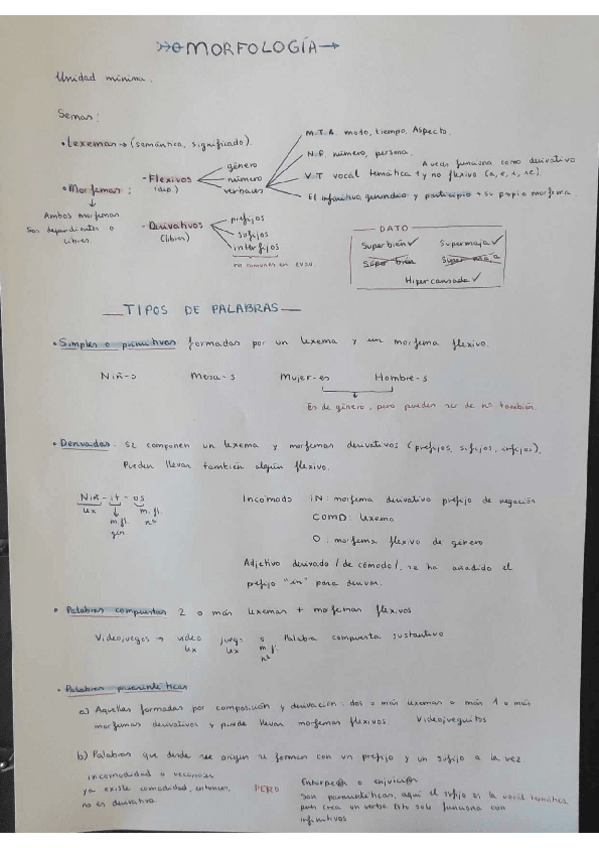 MORFOLOGÍA
Unidad mínima.
Semas:
• Lexemas → (semántica, significado).
• Morfemas:
Ambos morfemas
son dependientes o
libres.
- Flexivos
(dep)
género
número
verbales
M.T.A. modo, tiempo, Aspecto.
N.P. número, persona.
V.T vocal temática y no flexivo (a, e, i,
A veces funciona como derivativo
El infinitivo gerundio y participio + su propia morfema.
- Derivativos
(libres)
prefijos
sufijos
interfijos
no comunes en EVAU
DATO
Superbién ✓ Supermaja ✓
Súper bien Súper maja
Hipercansada ✓
TIPOS DE PALABRAS
• Simples o primitivas formadas por un lexema y un morfema flexivo.
Niñ-o Mesa-s Mujer-es Hombre-s
Es de género, pero pueden ser de nº también.
• Derivadas. Se componen un lexema y morfemas derivativos (prefijos, sufijos, infijos).
Pueden llevar también algún flexivo.
Niñ - it - os
lx m.fl. m.fl.
gén. nº
Incómodo IN: morfema derivativo prefijo de negación
COMD: lexema
O: morfema flexivo de género
Adjetivo derivado /de cómodo/, se ha añadido el
prefijo "in" para derivar.
• Palabras compuestas 2 o más lexemas + morfemas flexivos
Videojuegos → video juego s Palabra compuesta sustantivo
lx lx m.fl.
nº
• Palabras parasintéticas
a) Aquellas formadas por composición y derivación: dos o más lexemas o más 1 o más
morfemas derivativos y puede llevar morfemas flexivos. Videojueguitos
b) Palabras que desde su origen se forman con un prefijo y un sufijo a la vez
incomodidad o
ya existe comodidad, entonces,
no es derivativa.
PERO
Son parasintéticas, aquí el sufijo es la vocal temática
pues crea un verbo. Esto solo funciona con
infinitivos